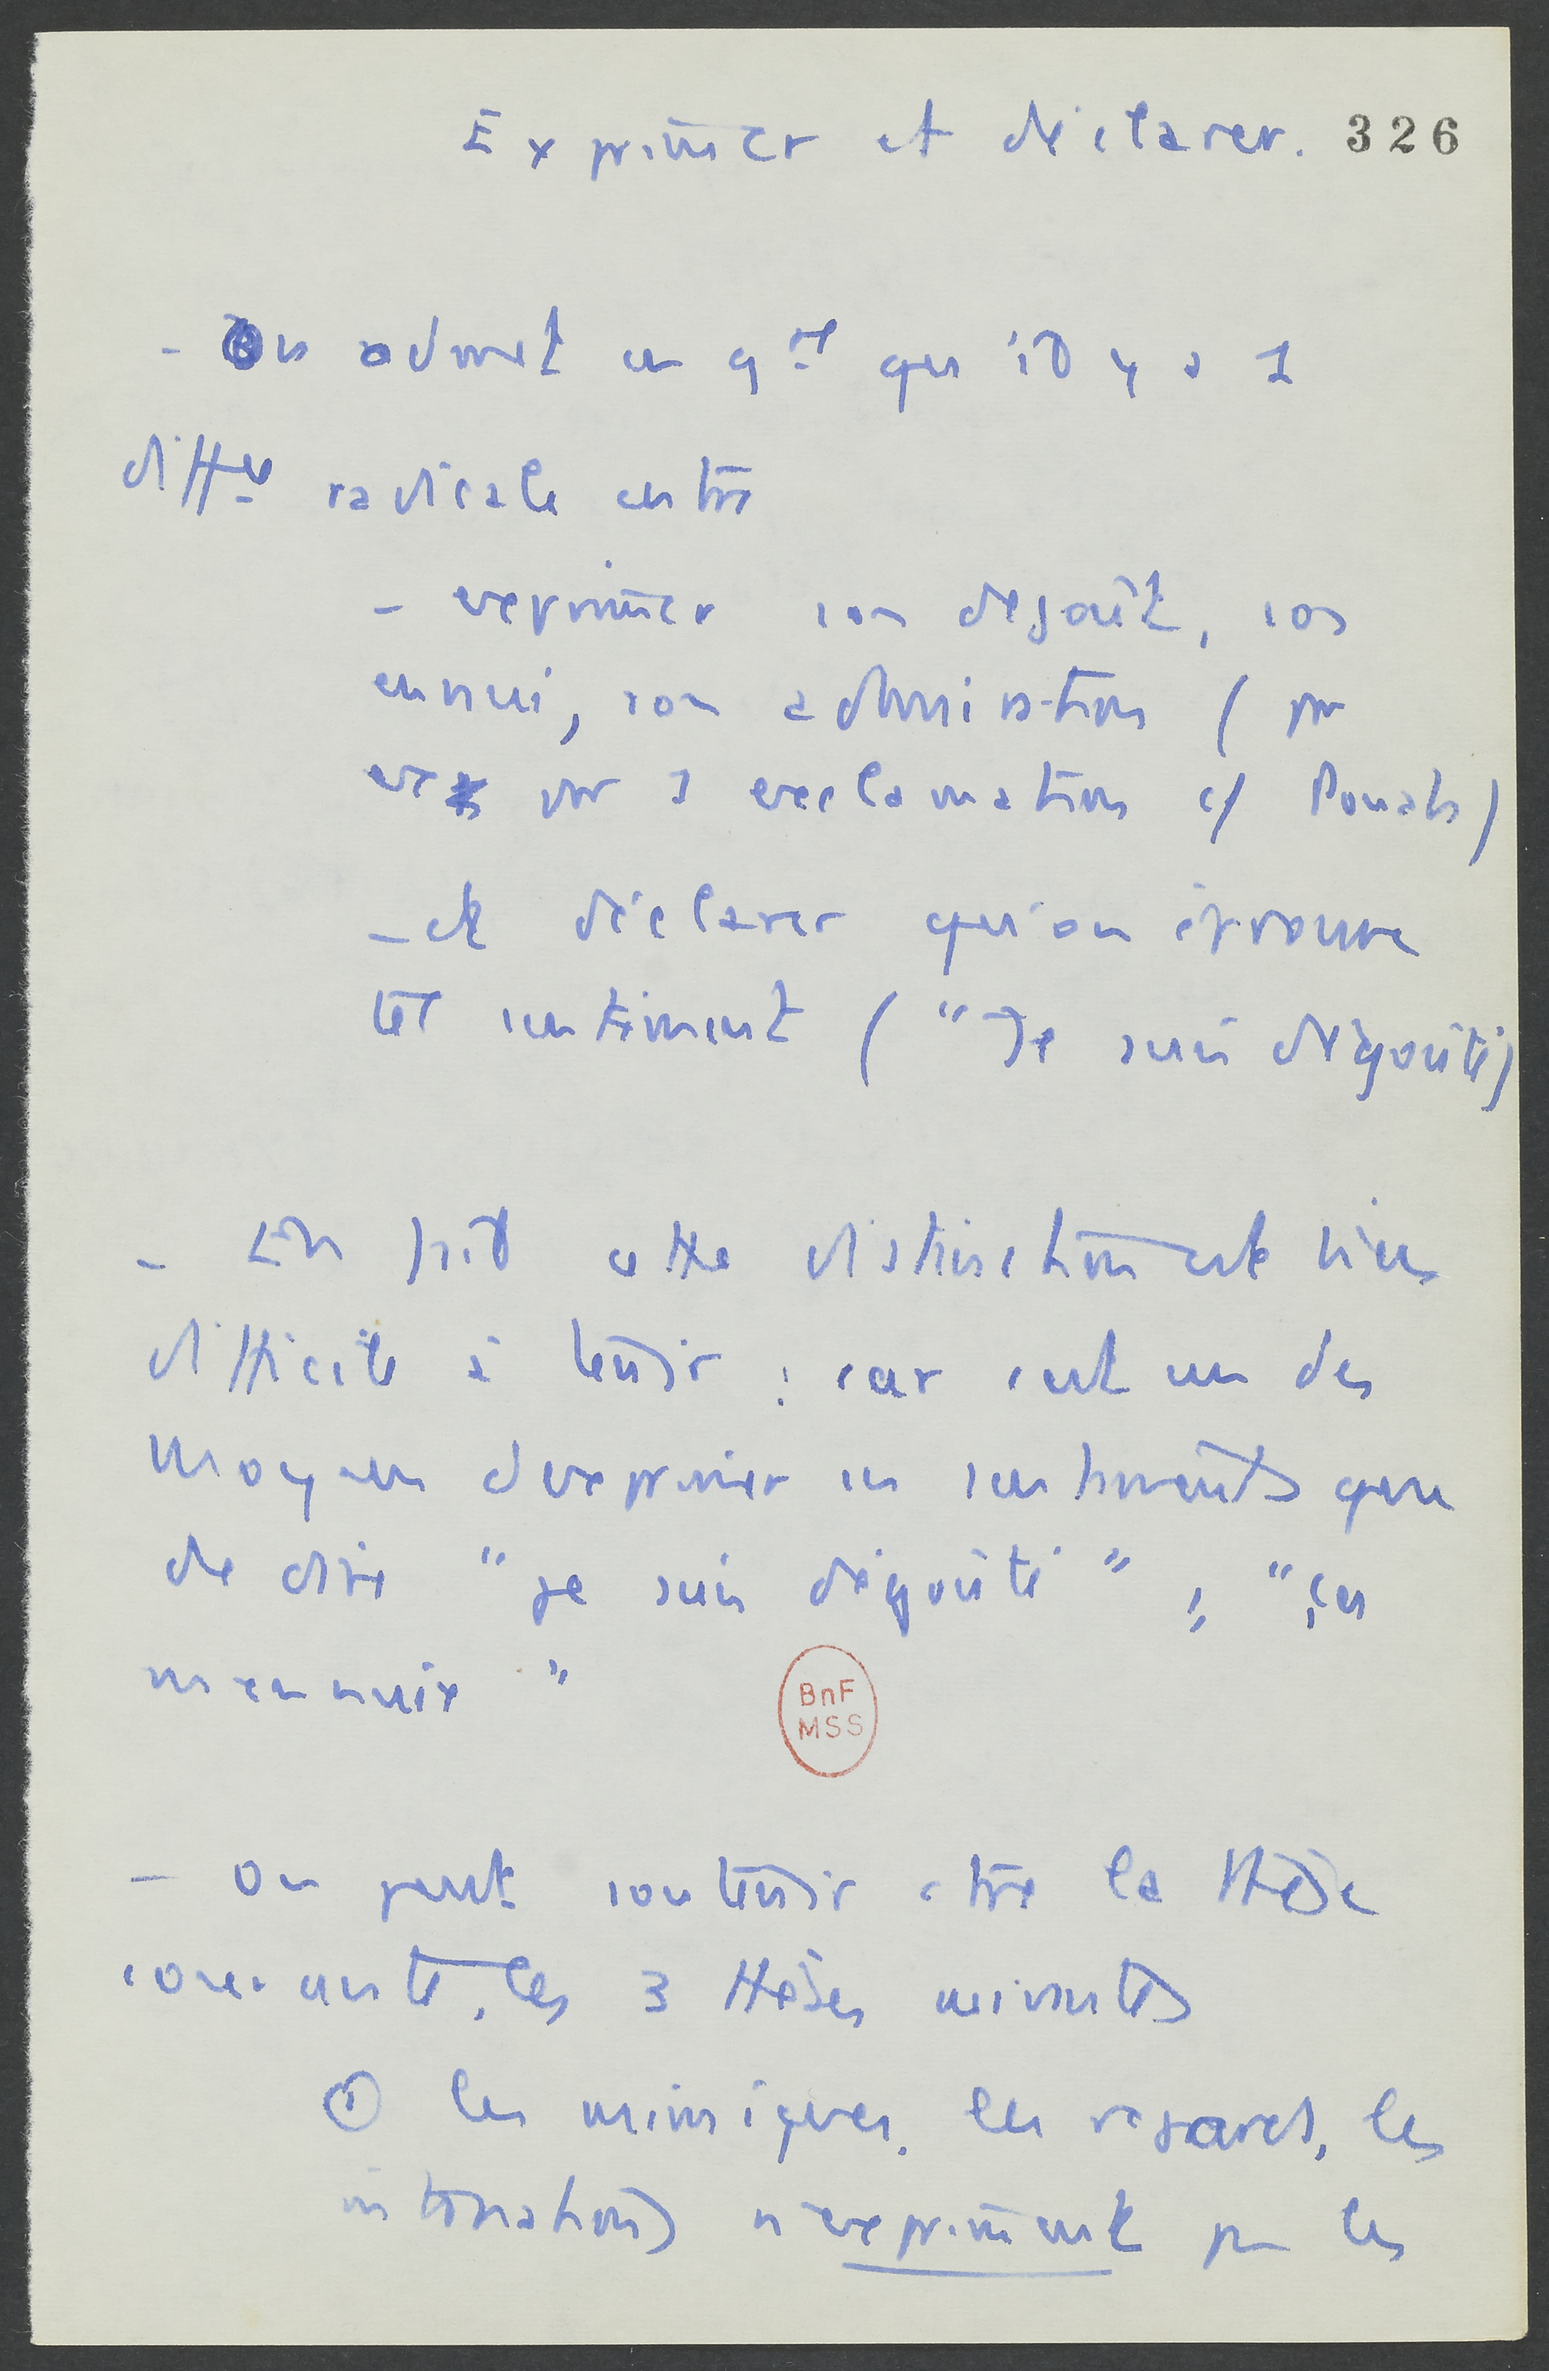 Exprimer et déclarer. 326
- On admet en gal que il y a 1
diffce radicale entre
- exprimer son degoût, son
ennui, son admiration (par
ex par 1 exclamation c/ Pouah)
- et déclarer qu'on éprouve
tel sentiment ("Je suis dégoûté)
- En fait cette distinction est bien
difficile à tenir : car c'est un des
moyens d'exprimer ces sentiments que
de dire "je suis dégoûté", "ça
m'ennuie"
BnF
MSS
- On peut soutenir ctre la thèse
courante, les 3 thèses suivantes
① les mimiques, les regards, les
intonations n'expriment pas les